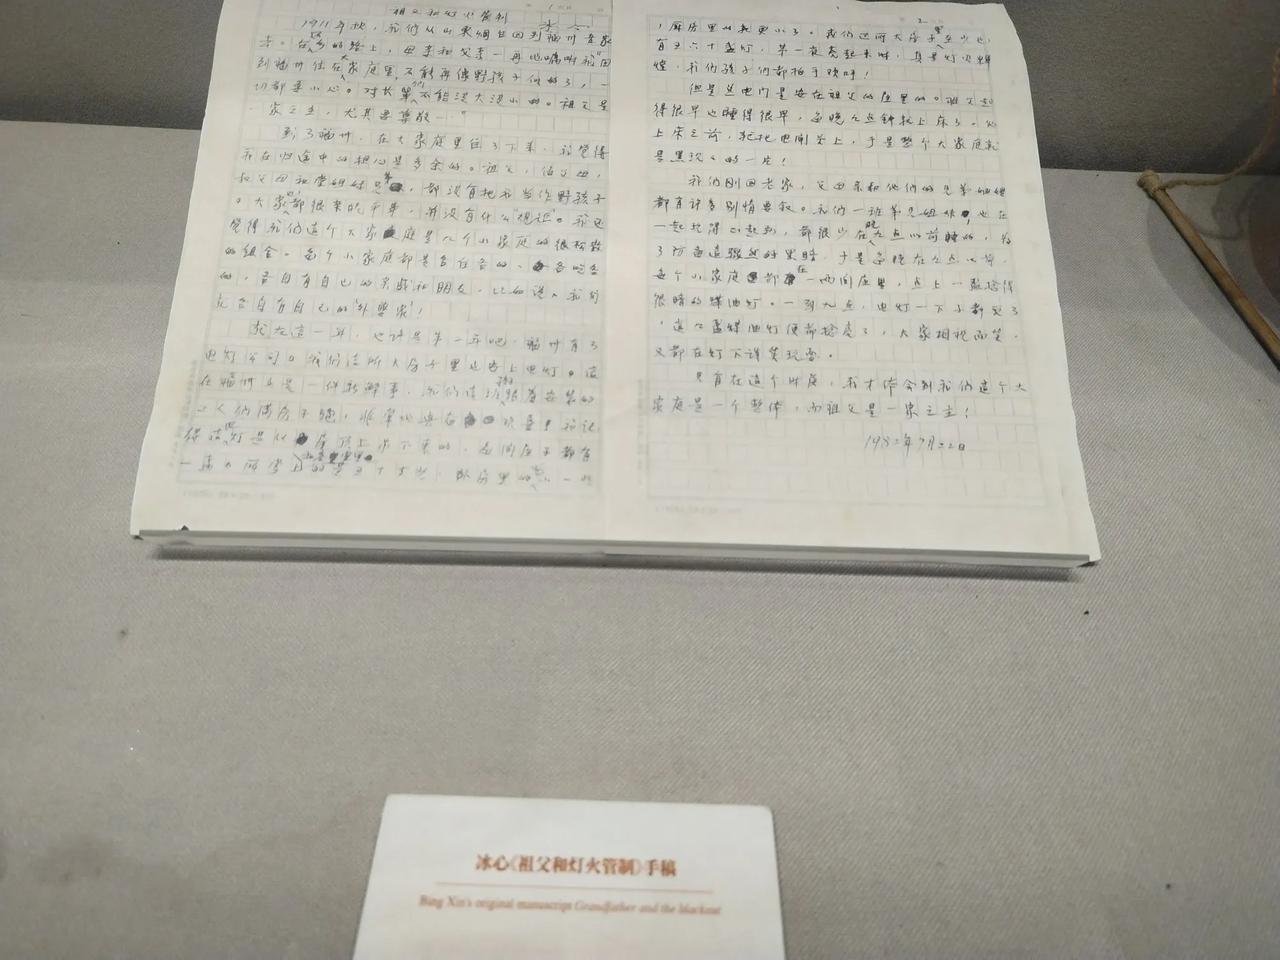 祖父和灯火管制
冰心
1911年秋，我们从山东烟台回到福州老家
去。在还乡的路上，母亲和父亲一再地嘱咐我"回
到福州住在大家庭里，不能再像野孩子似的了，一
切都要小心。对长辈们不能没大没小的。祖父是
一家之主，尤其要尊敬……"
到了福州，在大家庭里住了下来，我觉得
我在归途中的担心是多余的。祖父、伯父母、
叔父母和堂姐妹兄弟，都没有把我当作野孩子
。大家也都很亲昵平等，并没有什么"规矩"。我还
觉得我们这个大家庭是几个小家庭的很松散
的组合。每个小家庭都是各住各的，各吃各
的，各自有自己的亲戚和朋友，比如说，我们
就各自有自己的"外婆家"！
就在这一年，也许是第一年吧，福州有了
电灯公司。我们这所大房子里也安上电灯。这
在福州也是一件新鲜事，我们这班孩子跟着安装的
工人们满房子跑，非常地兴奋欢喜！我记
得这电灯是从房顶上吊下来的，每间屋子都有
一盏，厅堂上的
卧房里的
，厨房里的就更小了。我们这所大房子里至少也
有五六十盏灯，第一夜亮起来时，真是灯火辉
煌，我们孩子们都拍手欢呼！
但是总电门是安在祖父的屋里的。祖父起
得很早也睡得很早，每晚九点钟就上床了。他
上床之前，就把电闸关上，于是整个大家庭就
是黑沉沉的一片！
我们刚回老家，父母亲和他们的兄弟妯娌
都有许多别情要叙。我们一班弟兄姐妹，也在
一起玩得正起劲，都很少在晚九点以前睡的，为
了防备这骤然的黑暗，于是每晚在九点以前，
每个小家庭都在一两间屋里，点上一盏捻得
很暗的煤油灯。一到九点，电灯一下子都灭了
，这几盏煤油灯便都捻亮了，大家相视而笑，
又都在灯下谈笑玩耍。
只有在这个时候，我才体会到我们这个大
家庭是一个整体，而祖父是一家之主！
1982年7月22日
冰心《祖父和灯火管制》手稿
Bing Xin's original manuscript Grandfather and the blackout